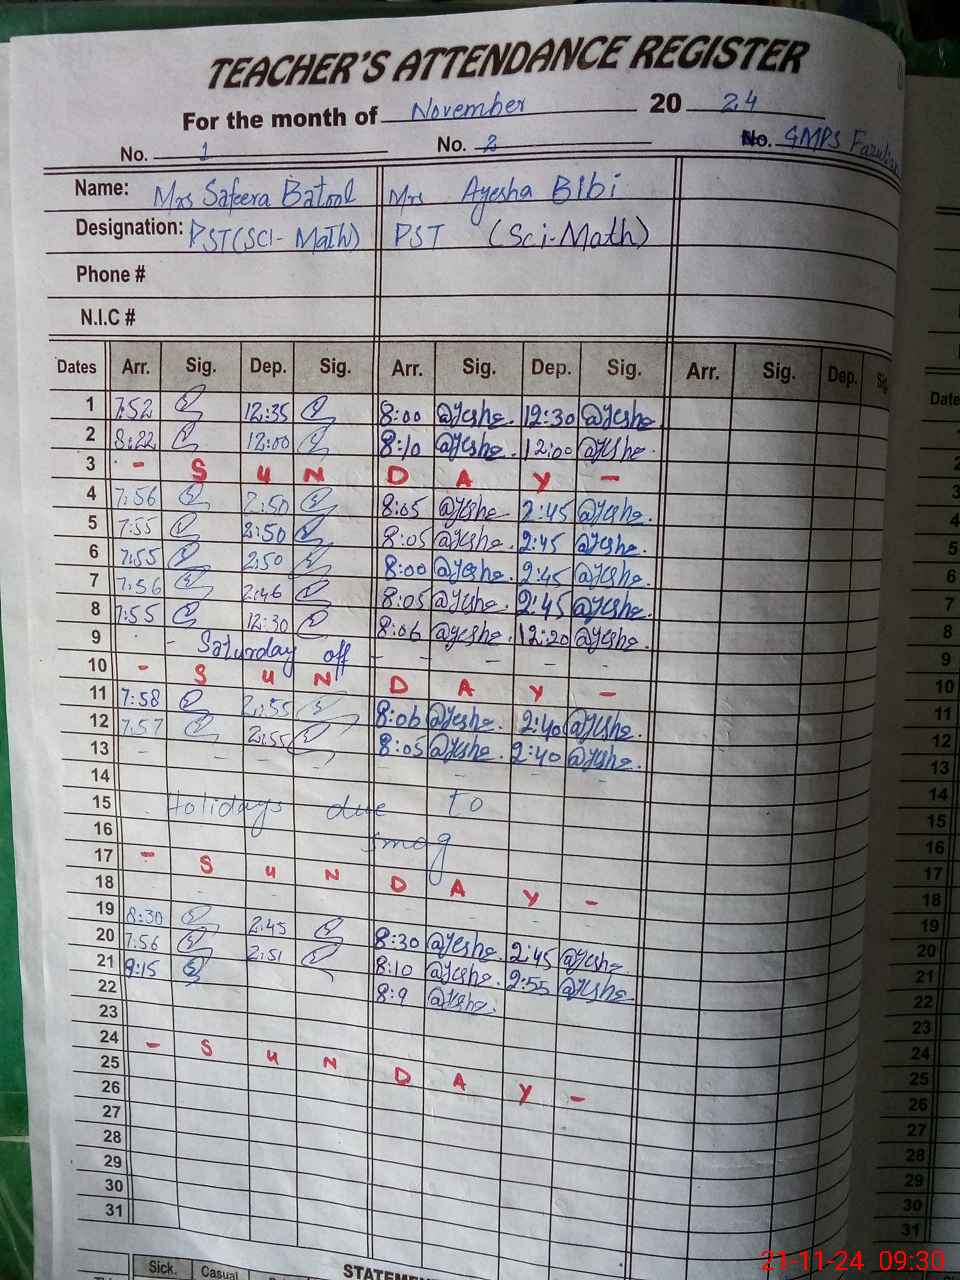 TEACHER'S ATTENDANCE REGISTER
For the month of November 20 24
No. 1 No. 2 No. GMPS
Name: Mrs Safeera Batool Mrs Ayesha BIbi
Designation: PST(SCI-MaTH) PST (Sci-Math)
Phone #
N.I.C #
Dates Arr. Sig. Dep. Sig. Arr. Sig. Dep. Sig. Arr. Sig. Dep.
1 7:52 12:35 8:00 @yesha. 12:30 @yesha
2 8:22 12:00 8:10 @yesha. 12:00 @yesha.
3 - S u N D A y -
4 7:56 2:50 8:05 @yesha 2:45 @yesha.
5 7:55 2:50 8:05 @yesha. 2:45 @yesha.
6 7:55 2:50 8:00 @yesha. 2:45 @yesha.
7 7:56 2:46 8:05 @yesha. 2:45 @yesha.
8 7:55 12:30 8:06 @yesha. 12:20 @yesha.
9 - Saturday off - - - - -
10 - S u N D A y -
11 7:58 2:55 8:06 @yesha. 2:40 @yesha.
12 7:57 2:55 8:05 @yesha. 2:40 @yesha.
13
14
15 Holidays due to
16 smog
17 - S u N D A y -
18
19 8:30 2:45 8:30 @yesha. 2:45 @yesha
20 7:56 2:51 8:10 @yesha. 2:55 @yesha
21 8:15 8:9 @yesha.
22
23
24 - S u N D A y -
25
26
27
28
29
30
31
Sick. Casual
STATEM
Date
2
3
4
5
6
7
8
9
10
11
12
13
14
15
16
17
18
19
20
21
22
23
24
25
26
27
28
29
30
31
21-11-24 09:30